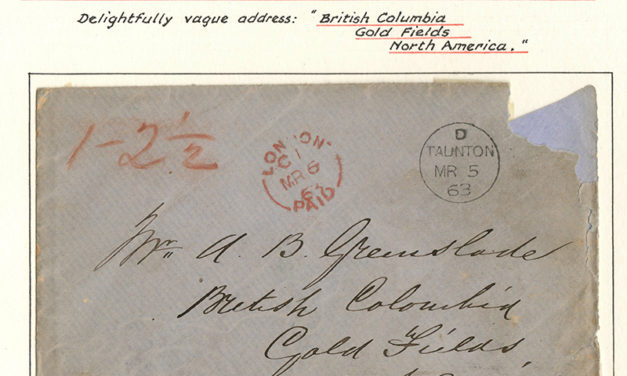 Delightfully vague address: "British Columbia
Gold Fields
North America."
1-2½
LONDON
C1
MR 6
63
PAID
D
TAUNTON
MR 5
63
Mr. A. B. Greenslade
British Columbia
Gold Fields,